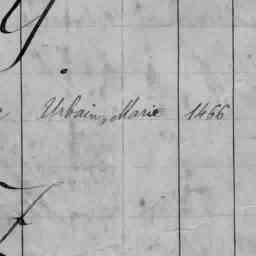 Y
Urbain, Marie 1466
Z